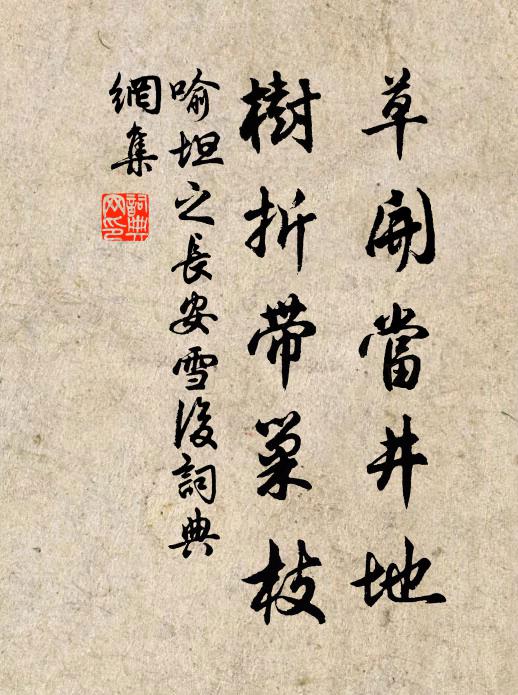 草開當井地
樹折帶巢枝
喻坦之長安雪後詞典
網集
詞典
网印